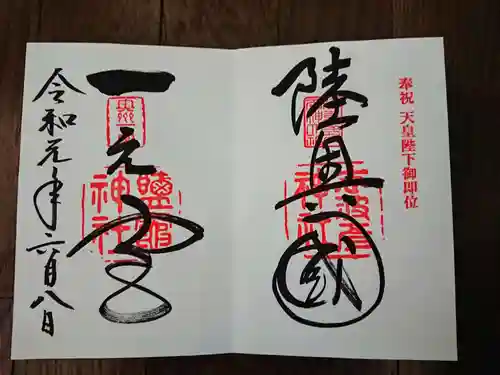 奉祝 天皇陛下御即位
陸奥國
志波彦
神社
一之宮
鹽竈
神社
令和元年六月八日